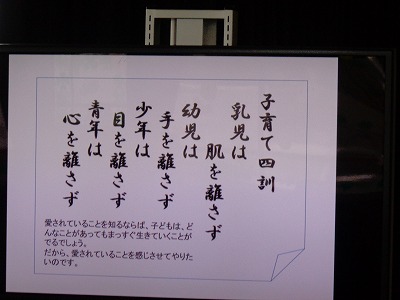 子育て四訓
乳児は
肌を離さず
幼児は
手を離さず
少年は
目を離さず
青年は
心を離さず
愛されていることを知るならば、子どもは、ど
んなことがあってもまっすぐ生きていくことが
でるでしょう。
だから、愛されていることを感じさせてやりた
いのです。